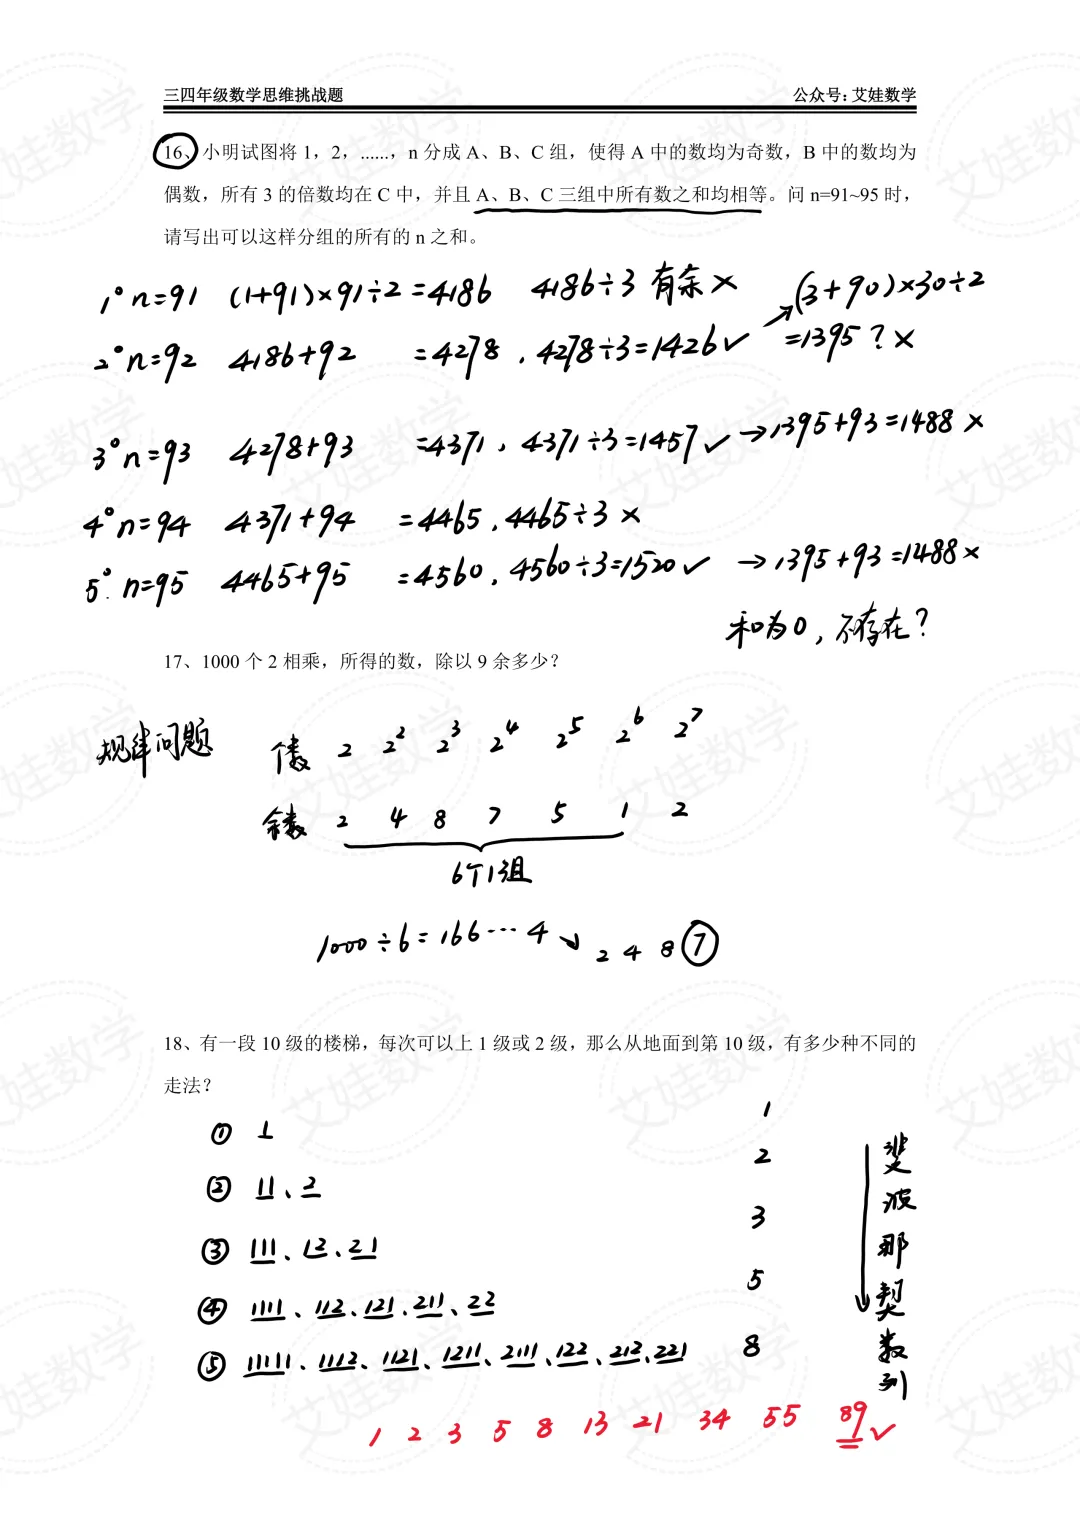 三四年级数学思维挑战题 公众号：艾娃数学
16、小明试图将 1，2，......，n 分成 A、B、C 组，使得 A 中的数均为奇数，B 中的数均为
偶数，所有 3 的倍数均在 C 中，并且 A、B、C 三组中所有数之和均相等。问 n=91~95 时，
请写出可以这样分组的所有的 n 之和。
1° n=91 (1+91)×91÷2=4186 4186÷3 有余 × (3+90)×30÷2
2° n=92 4186+92 =4278，4278÷3=1426✓ =1395？×
3° n=93 4278+93 =4371，4371÷3=1457✓ →1395+93=1488 ×
4° n=94 4371+94 =4465，4465÷3 ×
5° n=95 4465+95 =4560，4560÷3=1520✓ →1395+93=1488×
和为0，不存在？
17、1000 个 2 相乘，所得的数，除以 9 余多少？
规律问题 个数 2 2² 2³ 2⁴ 2⁵ 2⁶ 2⁷
余数 2 4 8 7 5 1 2
6个1组
1000÷6=166…4 → 2 4 8 ⑦
18、有一段 10 级的楼梯，每次可以上 1 级或 2 级，那么从地面到第 10 级，有多少种不同的
走法？
① 1 1
② 11、2 2
③ 111、12、21 3
④ 1111、112、121、211、22 5
⑤ 11111、1112、1121、1211、2111、122、212、221 8
斐波那契数列
1 2 3 5 8 13 21 34 55 89✓
艾娃数学